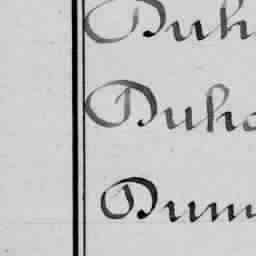 Duh
Duha
Dum